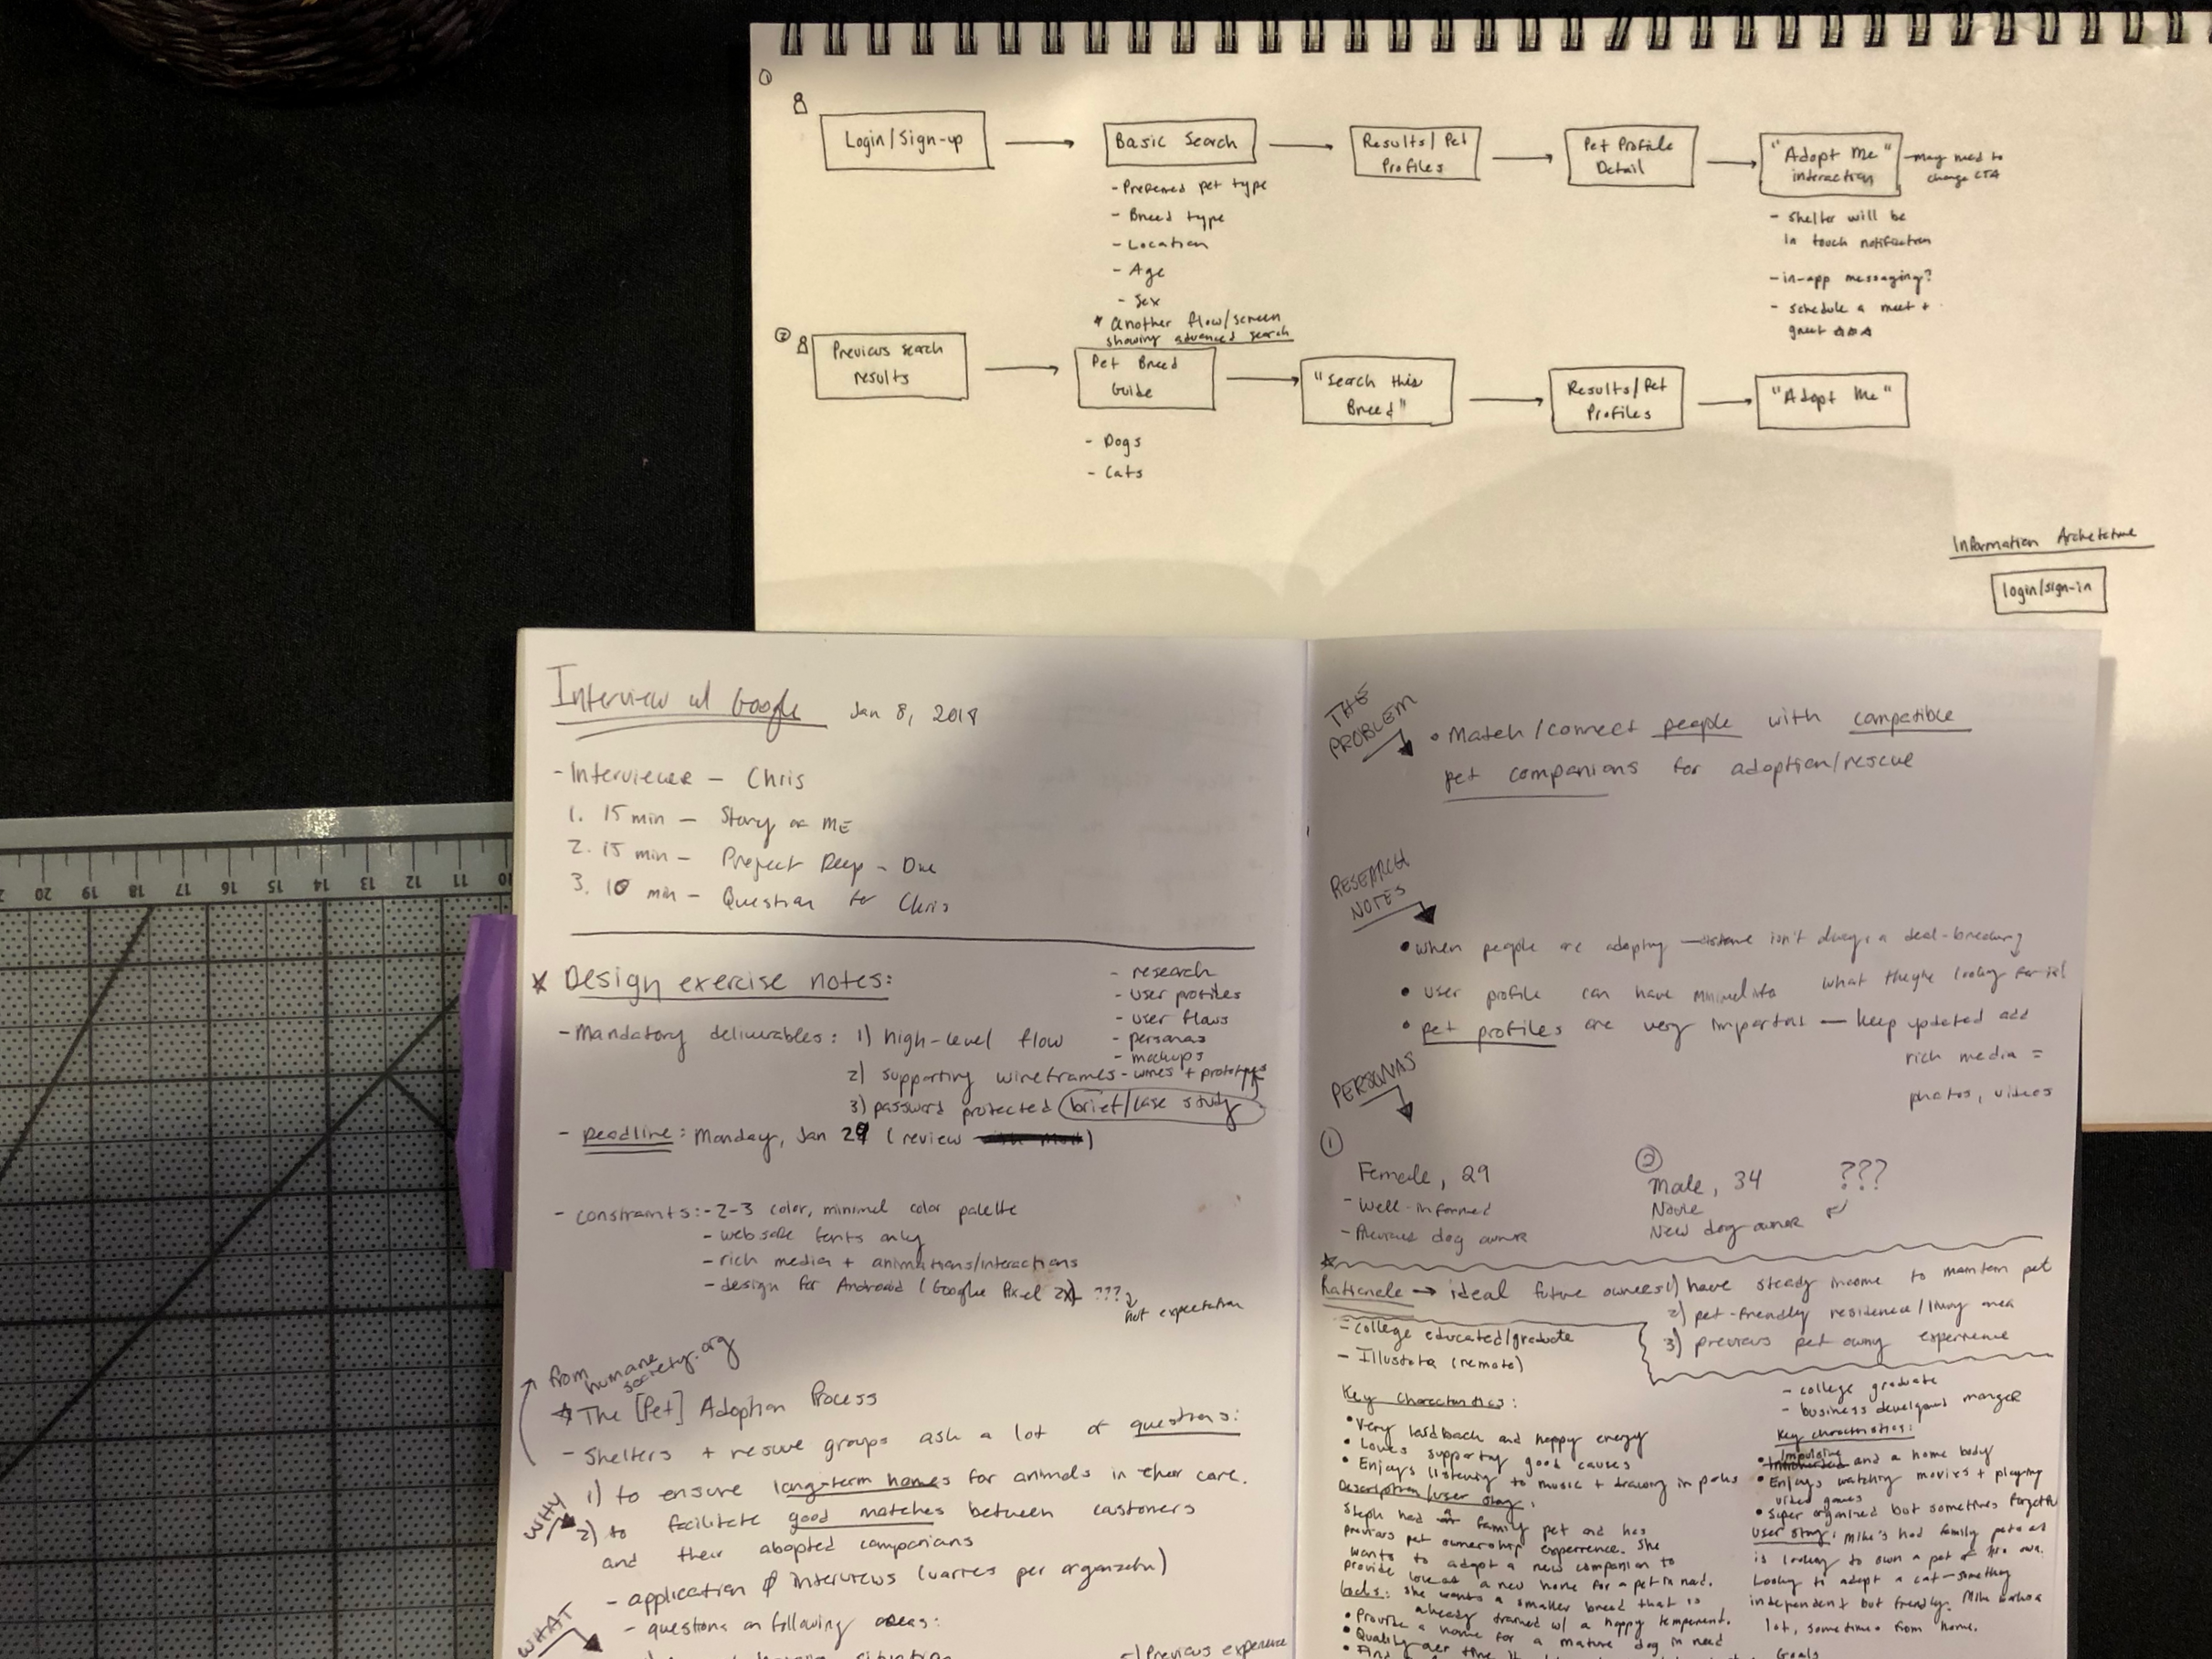 ①
Login/Sign-up
Basic Search
Results/Pet
Profiles
Pet Profile
Detail
"Adopt Me"
interaction
- may need to
change CTA
- Preferred pet type
- Breed type
- Location
- Age
- Sex
* Another flow/screen
showing advanced search
- Shelter will be
in touch notification
- in-app messaging?
- schedule a meet +
greet
②
Previous search
results
Pet Breed
Guide
"Search this
Breed"
Results/Pet
Profiles
"Adopt Me"
- Dogs
- Cats
Information
login/sign-in
Interview w/ Google Jan 8, 2018
- Interviewer - Chris
1. 15 min - Story of ME
2. 15 min - Project Deep - Dive
3. 10 min - Question for Chris
* Design exercise notes:
- research
- user profiles
- user flows
- personas
- mockups
- wires + prototypes
- Mandatory deliverables: 1) high-level flow
2) supporting wireframes
3) password protected brief/case study
- Deadline: Monday, Jan 29 (review )
- constraints: - 2-3 color, minimal color palette
- web safe fonts only
- rich media + animations/interactions
- design for Android (Google Pixel ???
not expectation
from humane society.org
* The [Pet] Adoption Process
- Shelters + rescue groups ask a lot of questions:
WHY
1) to ensure long-term homes for animals in their care.
2) to facilitate good matches between customers
and their adopted companions
- application interviews (varies per organization)
WHAT
- questions on following areas:
situation
Previous experience
THE
PROBLEM
• Match/connect people with compatible
pet companions for adoption/rescue
RESEARCH
NOTES
• when people are adopting - distance isn't always a deal-breaking
• user profile can have minimal info what they're looking for
• pet profiles are very important - keep updated add
rich media =
photos, videos
PERSONAS
①
Female, 29
- Well-informed
- Previous dog owner
②
Male, 34 ???
Novice
New dog owner
Rationale → ideal future owners: 1) have steady income to maintain pet
2) pet-friendly residence/living area
3) previous pet owning experience
- college educated/graduate
- (remote)
Key Characteristics:
• Very laidback and happy energy
• Loves supporting good causes
• Enjoys listening to music + drawing in parks
Description/User Story:
Steph had a family pet and has
previous pet ownership experience. She
wants to adopt a new companion to
provide love a new home for a pet in need.
She wants a smaller breed that is
already trained w/ a happy temperament.
• Provide a home for a mature dog in need
• Quality
• Find
- college graduate
- business development manager
Key Characteristics:
• Impulsive and a home body
• Enjoys watching movies + playing
video games
• Super organized but sometimes forgetful
User Story: Mike's had family pets and
is looking to own a pet of his own.
Looking to adopt a cat - something
independent but friendly. Mike works a
lot, sometimes from home.
Goals